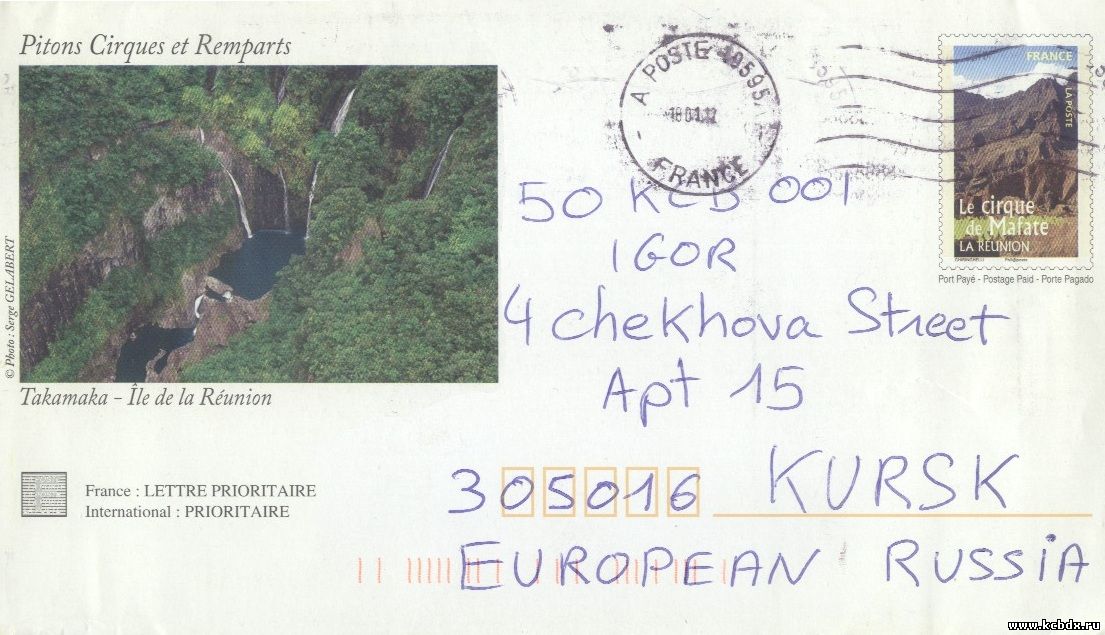 Pitons Cirques et Remparts
© Photo : Serge GELABERT
Takamaka - Île de la Réunion
A POSTE 40595A
18 01.12
FRANCE
FRANCE
LA POSTE
Le cirque
de Mafate
LA RÉUNION
Port Payé - Postage Paid - Porte Pagado
50 KCB 001
IGOR
4 Chekhova Street
Apt 15
305016 KURSK
EUROPEAN RUSSIA
France : LETTRE PRIORITAIRE
International : PRIORITAIRE
www.kcbdx.ru